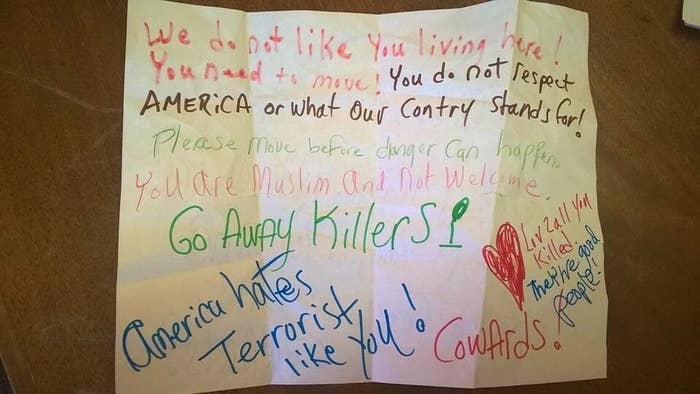 We do not like you living here!
You need to move! You do not respect
AMERiCA or what our Contry Stands for!
Please move before danger Can happen.
You are Muslim And Not Welcome.
Go AwAy KillerS!
Luv 2 all you
Killed
They're good
people!
America hates
Terrorist
like you!
CowArds!